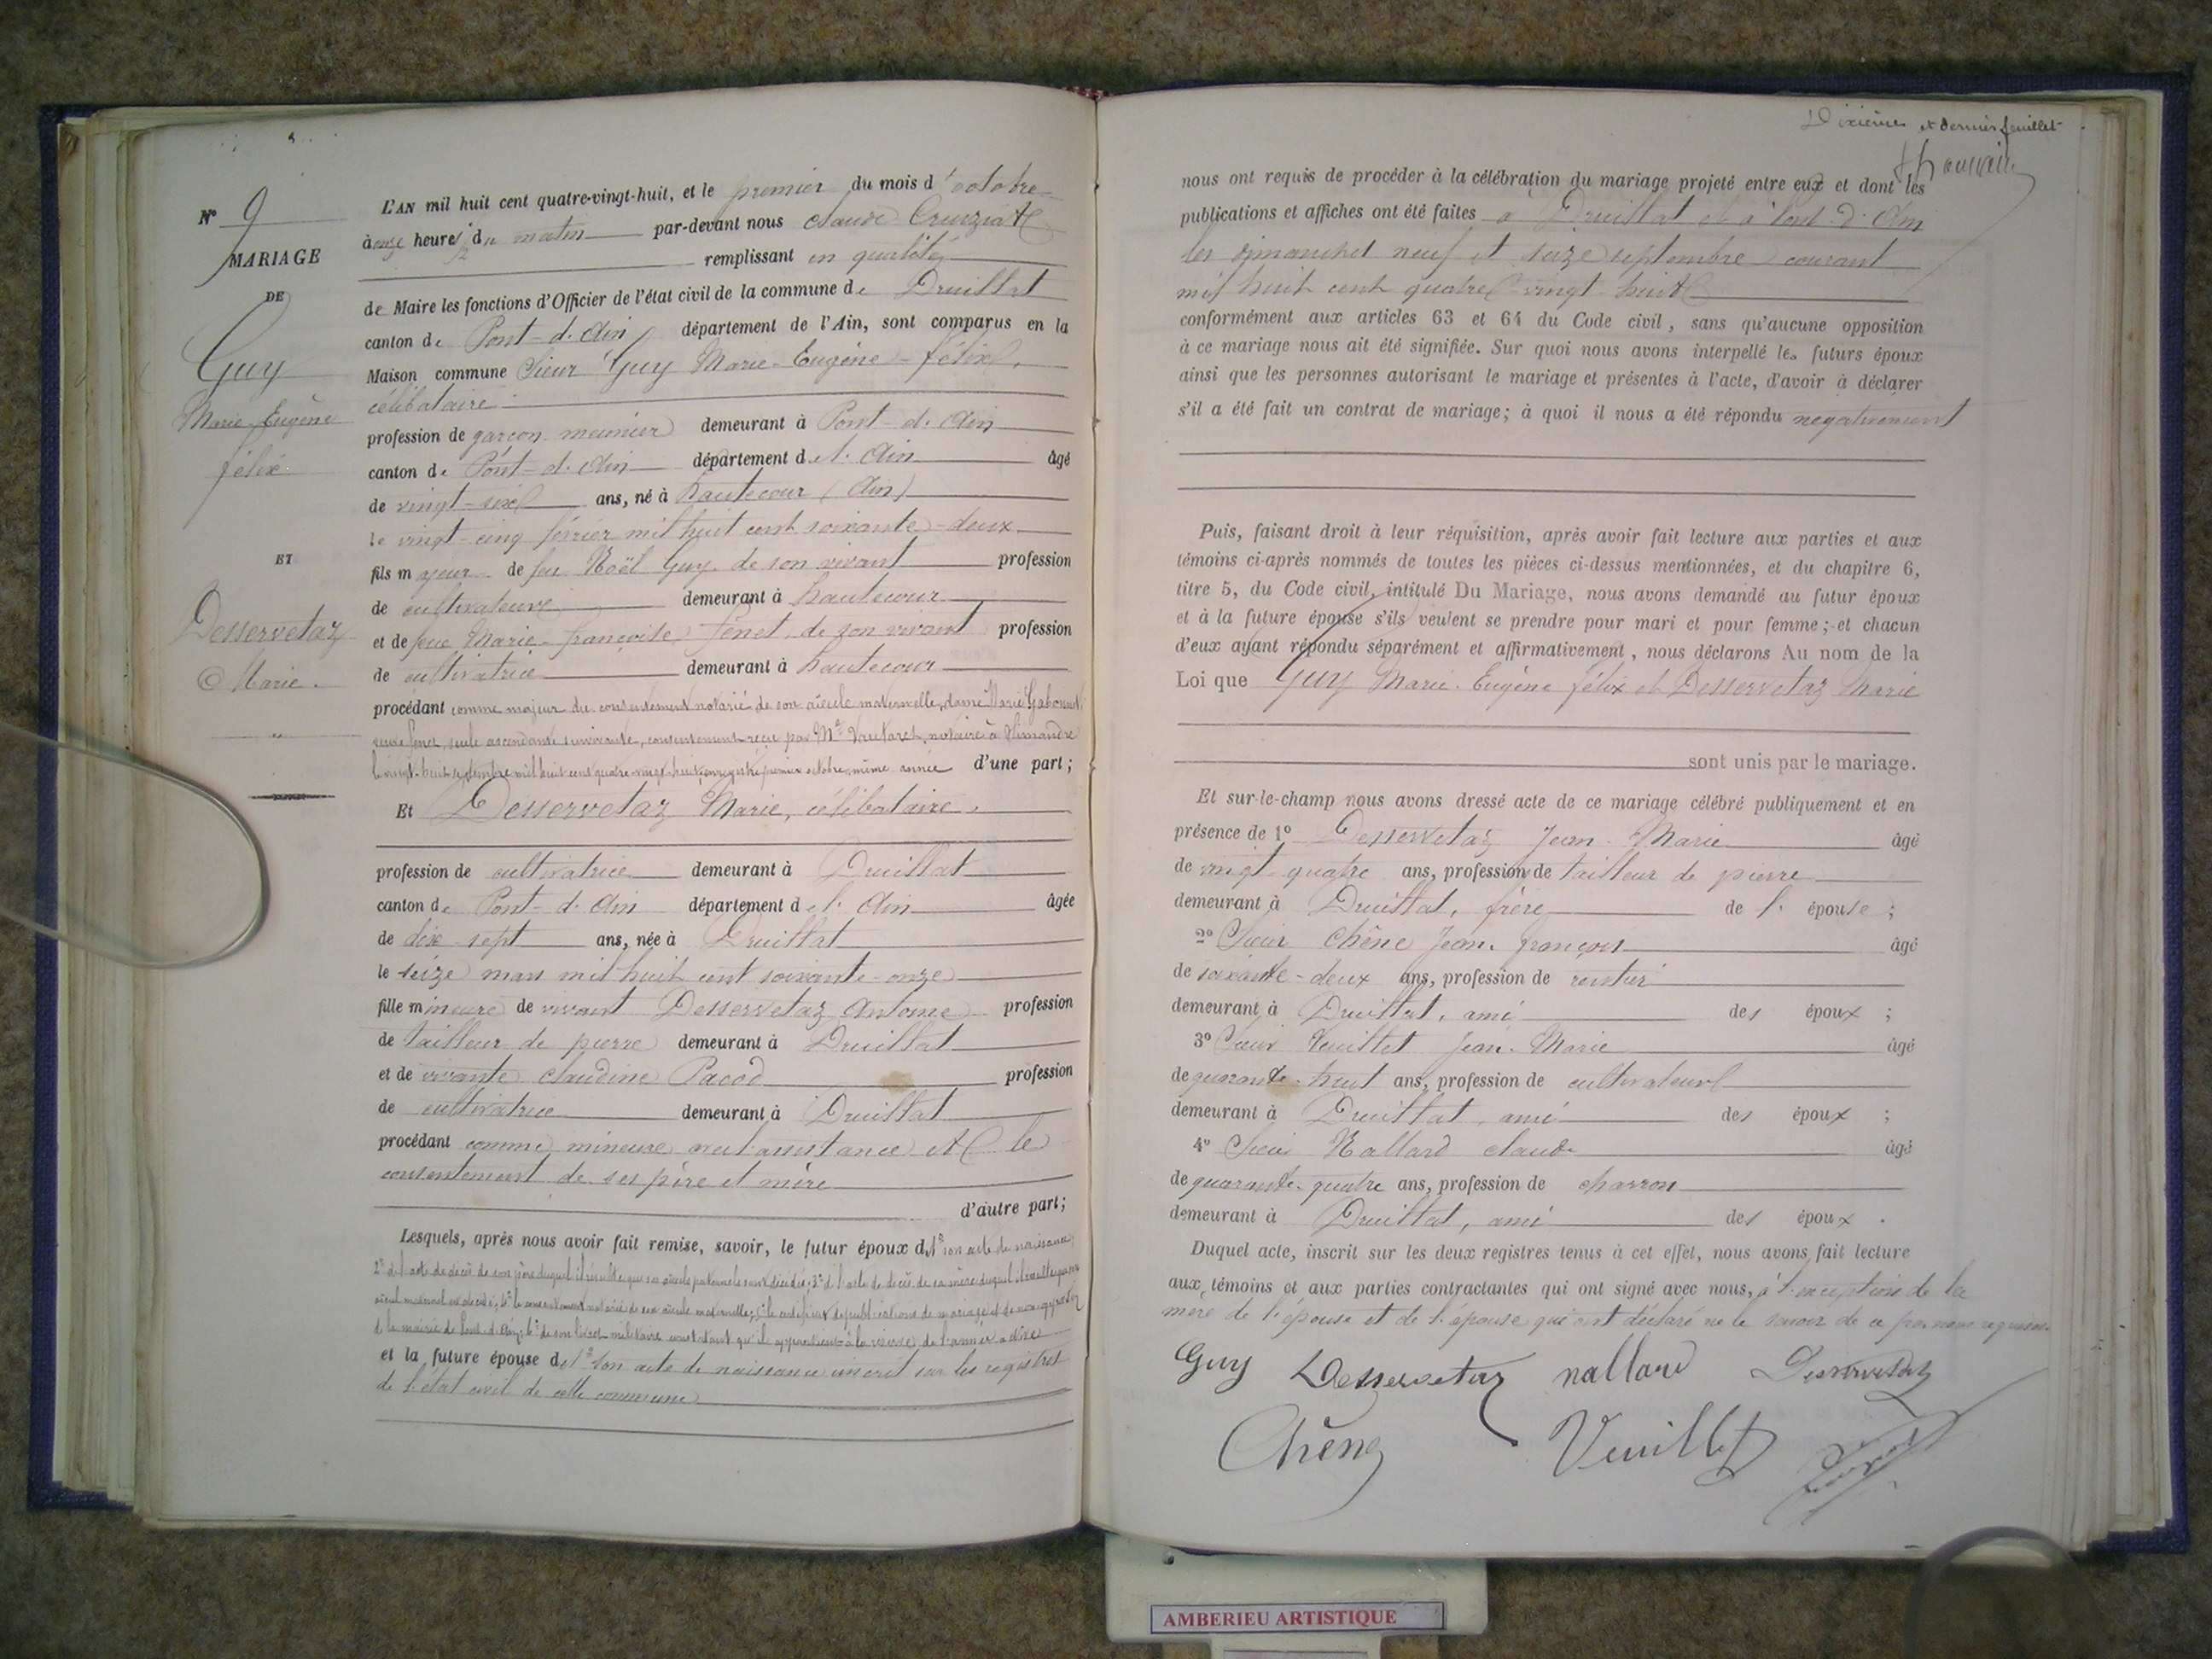 Nº 9
MARIAGE
DE
Guy
Marie Eugène
félix
ET
Desservetaz
Marie.
L'AN mil huit cent quatre-vingt-huit, et le premier du mois d'octobre
à onze heures ½ du matin par-devant nous Claude
remplissant en qualité
de Maire les fonctions d'Officier de l'état civil de la commune de Druillat
canton de Pont-d'Ain département de l'Ain, sont comparus en la
Maison commune Sieur Guy Marie-Eugène-félix,
célibataire
profession de garçon meunier demeurant à Pont-d'Ain
canton de Pont-d'Ain département de l'Ain âgé
de vingt-six ans, né à hautecour (Ain)
le vingt-cinq février mil huit cent soixante-deux
fils majeur de feu Noël Guy de son vivant profession
de cultivateur demeurant à hautecour
et de feue Marie-françoise fenet, de son vivant profession
de cultivatrice demeurant à hautecour
procédant comme majeur du consentement notarié de son aïeule maternelle, dame Marie
veuve fenet, seule ascendante survivante, consentement reçu par Me notaire à
le vingt-huit septembre mil huit cent quatre-vingt-huit, enregistré premier octobre même année d'une part;
Et Desservetaz Marie, célibataire,
profession de cultivatrice demeurant à Druillat
canton de Pont-d'Ain département de l'Ain âgée
de dix sept ans, née à Druillat
le seize mars mil huit cent soixante-onze
fille mineure de vivant Desservetaz Antoine profession
de tailleur de pierre demeurant à Druillat
et de vivante claudine Pacod profession
de cultivatrice demeurant à Druillat
procédant comme mineure avec l'assistance et le
consentement de ses père et mère
d'autre part;
Lesquels, après nous avoir fait remise, savoir, le futur époux de 1º son acte de naissance
2º de l'acte de décès de son père duquel il résulte que ses aïeuls paternels sont décédés; 3º de l'acte de décès de sa mère duquel il résulte que son
aïeul maternel est décédé; 4º le consentement notarié de son aïeule maternelle; 5º le certificat de publications de mariage et de non opposition
de la mairie de Pont-d'Ain; 6º de son livret militaire constatant qu'il appartient à la réserve de l'armée active
et la future épouse de 1º son acte de naissance inscrit sur les registres
de l'état civil de cette commune
Dixième et dernier feuillet
nous ont requis de procéder à la célébration du mariage projeté entre eux et dont les
publications et affiches ont été faites à Druillat et à Pont-d'Ain
les dimanches neuf et seize septembre courant
mil huit cent quatre-vingt-huit
conformément aux articles 63 et 64 du Code civil, sans qu'aucune opposition
à ce mariage nous ait été signifiée. Sur quoi nous avons interpellé les futurs époux
ainsi que les personnes autorisant le mariage et présentes à l'acte, d'avoir à déclarer
s'il a été fait un contrat de mariage; à quoi il nous a été répondu négativement
Puis, faisant droit à leur réquisition, après avoir fait lecture aux parties et aux
témoins ci-après nommés de toutes les pièces ci-dessus mentionnées, et du chapitre 6,
titre 5, du Code civil, intitulé Du Mariage, nous avons demandé au futur époux
et à la future épouse s'ils veulent se prendre pour mari et pour femme; et chacun
d'eux ayant répondu séparément et affirmativement, nous déclarons Au nom de la
Loi que Guy Marie-Eugène félix et Desservetaz Marie
sont unis par le mariage.
Et sur-le-champ nous avons dressé acte de ce mariage célébré publiquement et en
présence de 1º Desservetaz Jean-Marie âgé
de vingt quatre ans, profession de tailleur de pierre
demeurant à Druillat, frère de l'épouse;
2º Sieur Chêne Jean françois âgé
de soixante-deux ans, profession de rentier
demeurant à Druillat, ami des époux;
3º Sieur Veuillet Jean-Marie âgé
de quarante-huit ans, profession de cultivateur
demeurant à Druillat, ami des époux;
4º Sieur Nallard claude âgé
de quarante-quatre ans, profession de charron
demeurant à Druillat, ami des époux.
Duquel acte, inscrit sur les deux registres tenus à cet effet, nous avons fait lecture
aux témoins et aux parties contractantes qui ont signé avec nous, à l'exception de la
mère de l'épouse et de l'épouse qui ont déclaré ne le savoir de ce par nous requises.
Guy Desservetaz nallard Desservetaz
Chêne Veuillet
AMBERIEU ARTISTIQUE